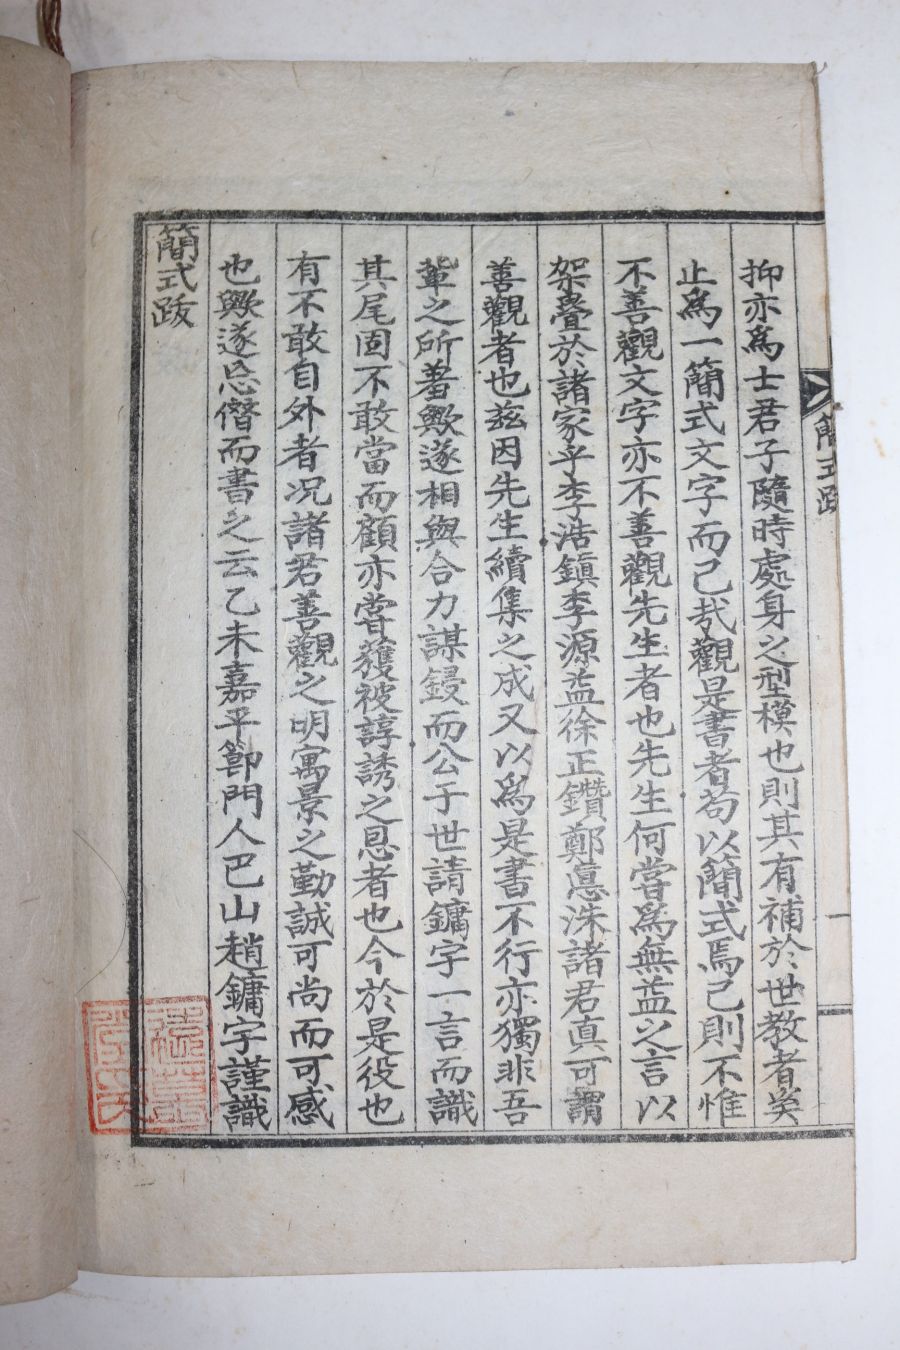 簡式跋
一
抑亦爲士君子隨時處身之型模也則其有補於世教者奚
止爲一簡式文字而已哉觀是書者苟以簡式焉已則不惟
不善觀文字亦不善觀先生者也先生何嘗爲無益之言以
架疊於諸家乎李浩鎭李源益徐正鑽鄭悳洙諸君眞可謂
善觀者也玆因先生續集之成又以爲是書不行亦獨非吾
輩之所羞歟遂相與合力謀鋟而公于世請鏞字一言而識
其尾固不敢當而顧亦嘗獲被諄誘之恩者也今於是役也
有不敢自外者况諸君善觀之明寓景之勤誠可尚而可感
也歟遂忘僭而書之云乙未嘉平節門人巴山趙鏞字謹識
簡式跋